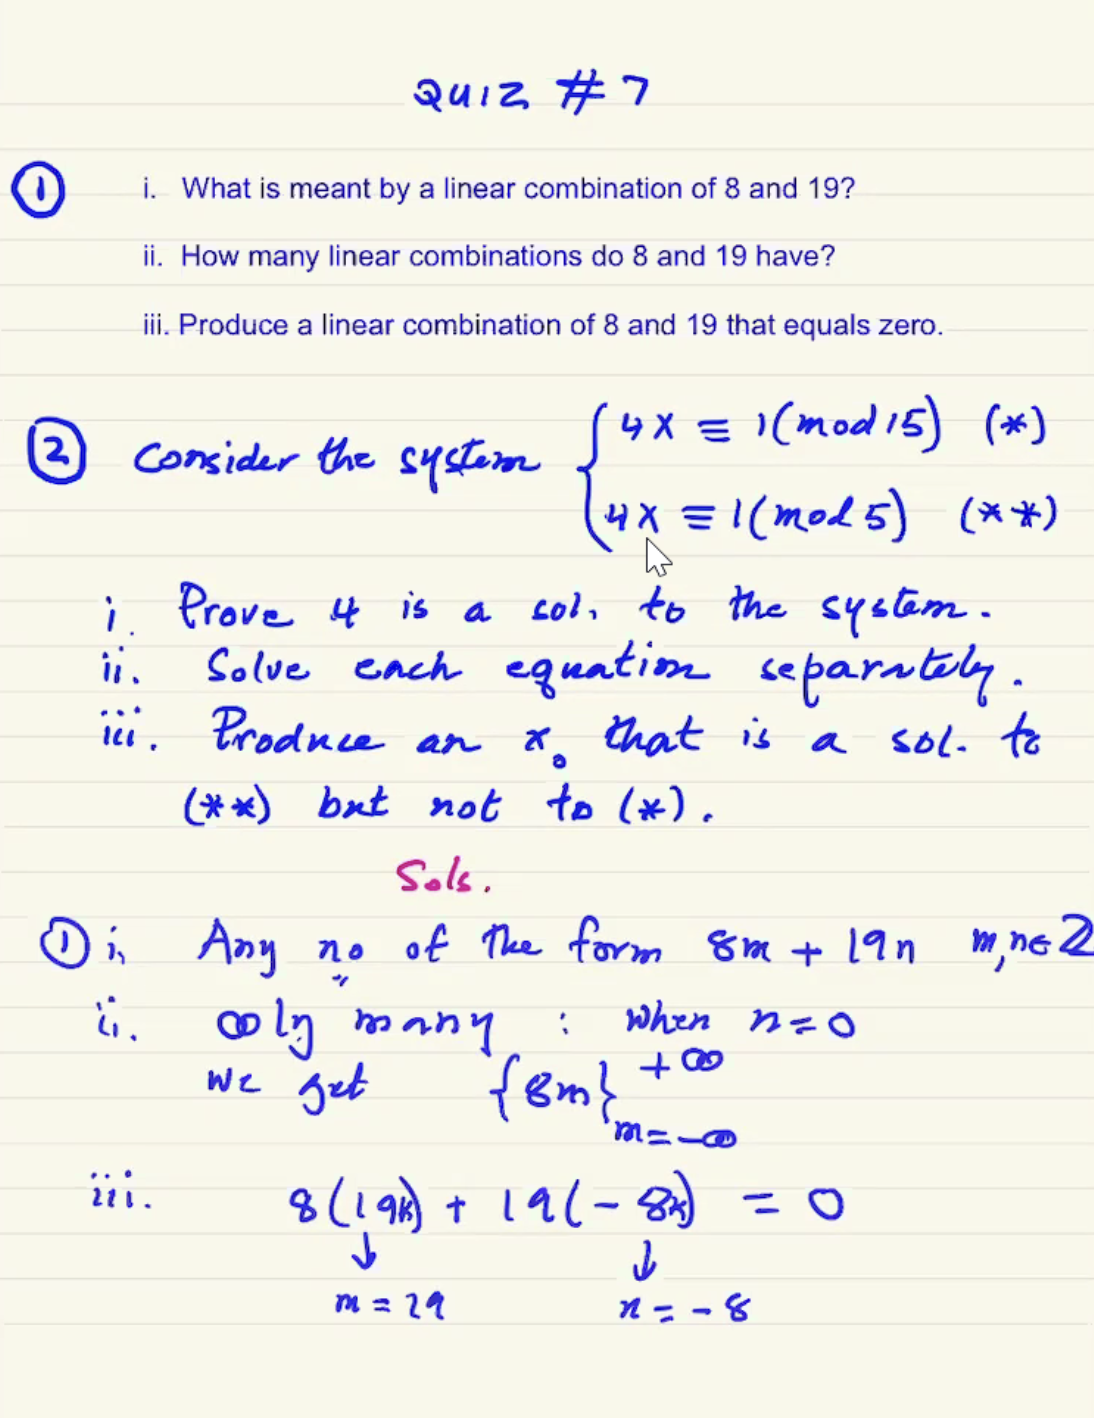 QUIZ # 7
① i. What is meant by a linear combination of 8 and 19?
ii. How many linear combinations do 8 and 19 have?
iii. Produce a linear combination of 8 and 19 that equals zero.
② Consider the system { 4X ≡ 1(mod 15) (*)
4X ≡ 1(mod 5) (**)
i. Prove 4 is a sol. to the system.
ii. Solve each equation separately.
iii. Produce an x₀ that is a sol. to
(**) but not to (*).
Sols.
① i. Any no of the form 8m + 19n m,n∈Z
ii. ∞ly many : when n=0
we get {8m}
+∞
m=-∞
iii. 8(19k) + 19(-8k) = 0
↓ ↓
m = 19 n = -8